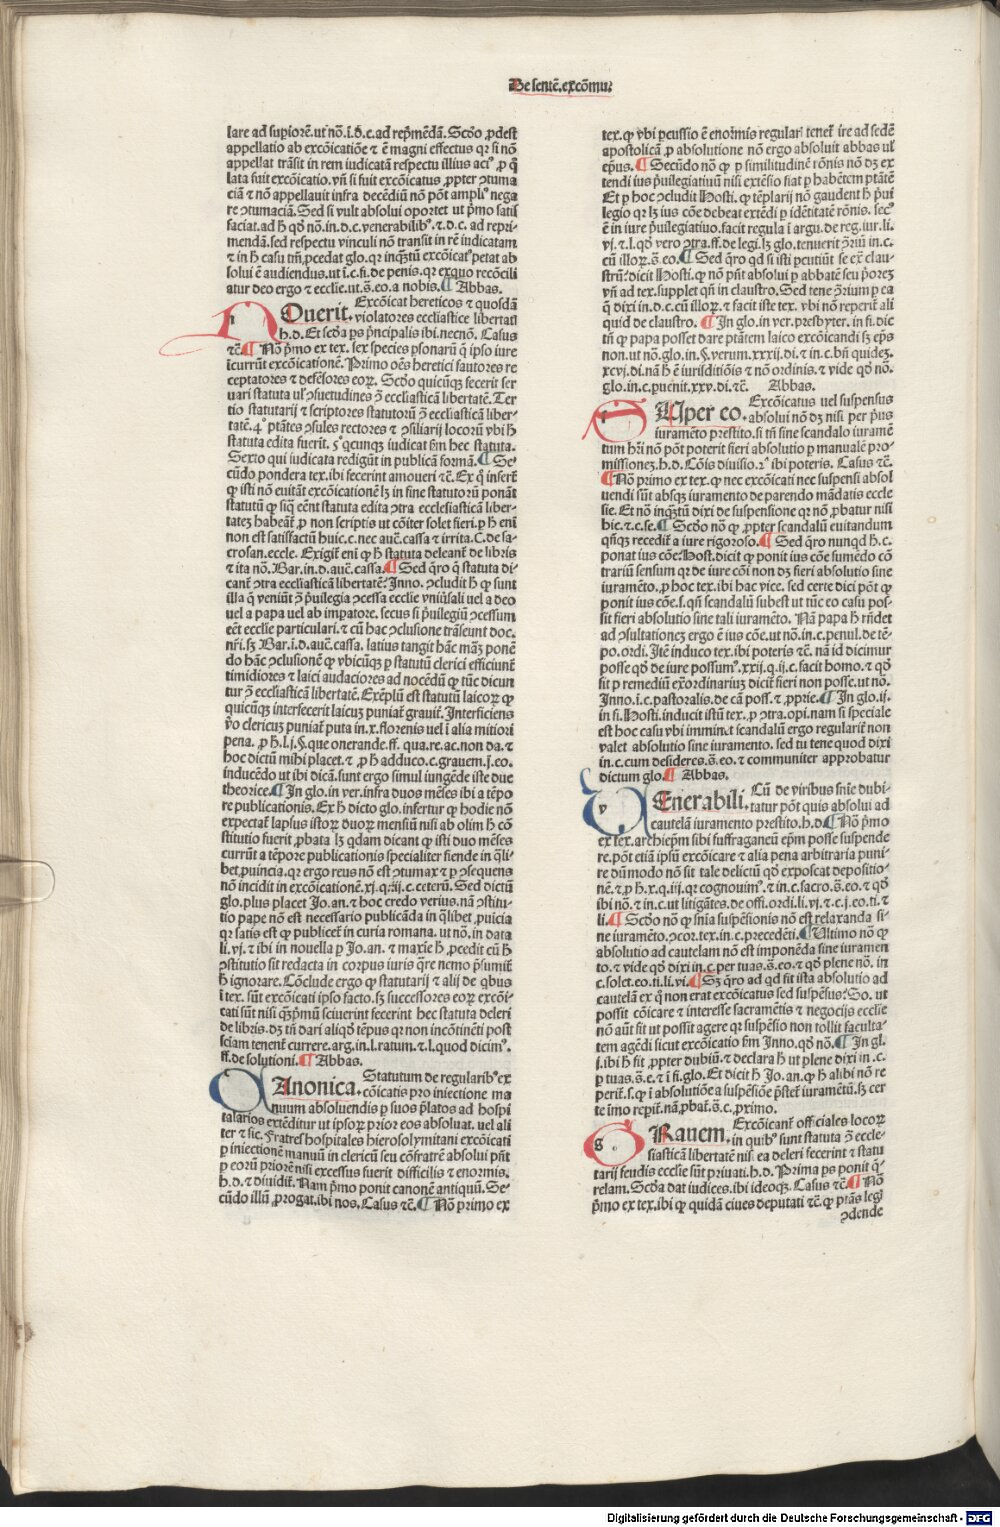 De sentẽ.excõmu.
lare ad supiorẽ.ut nõ.ĩ.d̃.c.ad rep̃mẽdã.Scd̃o ꝓdest
appellatio ab excõicatiõe ⁊ ẽ magni effectus qr si nõ
appellat trãsit in rem iudicatã respectu illius aci⁹ ꝑ q̃
lata fuit excõicatio.vñ si fuit excõicatus ꝓpter ↄtuma
ciã ⁊ nõ appellauit infra decẽdiũ nõ põt ampli⁹ nega
re ↄtumaciã.Sed si vult absolui oportet ut p̃mo satis
faciat.ad h̃ qd̃ nõ.in.d.c.venerabilib⁹.⁊.d.c.ad repri-
mendã.sed respectu vinculi nõ transit in rẽ iudicatam
⁊ in h̃ casu tm̃ ꝓcedat glo.qr inqz̃tũ excõicat⁹ petat ab
solui ẽ audiendus.ut ĩ.c.fi.de penis.qr exquo recõcili
atur deo ergo ⁊ ecclie.ut.s̃.eo.a nobis.¶ Abbas.
n Ouerit. Excõicat hereticos ⁊ quosdã
violatores ecclesiastice libertati
h.d.Et scd̃a ps p̃ncipalis ibi.necnõ. Casus
⁊c̃.¶ Nõ p̃mo ex tex. sex species psonarũ q̃ ipso iure
ĩcurrũt excõicationẽ.Primo oẽs heretici fautores re
ceptatores ⁊ defẽsores eoꝝ. Scd̃o quicũqz fecerit ser
uari statuta ul̃ ↄsuetudines ↄ̃ ecclesiasticã libertatẽ.Ter
tio statutarij ⁊ scriptores statutorũ ↄ̃ ecclesiasticã liber-
tatẽ.4⁰ ptãtes ↄsules rectores ⁊ ↄsiliarij locorũ vbi h̃
statuta edita fuerit. 5⁰ qcunqz iudicat ẽm hec statuta.
Sexto qui iudicata redigũt in publicã formã.¶ Se
cũdo pondera tex.ibi fecerint amoueri ⁊c̃.Ex q̃ infert̃
ꝙ isti nõ euitãt excõicationẽ lz in fine statutorũ ponãt
statutũ ꝙ siq̃ eẽnt statuta edita ↄtra ecclesiasticã liber-
tatez habeãt̃ ꝓ non scriptis ut cõiter solet fieri.p h̃ enĩ
non est satisfactũ huic.c.nec auẽ.cassa ⁊ irrita.C.de sa-
crosan.eccle. Exigit̃ enĩ ꝙ h̃ statuta deleant̃ de libris
⁊ ita nõ.Bar.in.d.auẽ.cassa.¶ Sed q̃ro q̃ statuta di-
cant̃ ↄtra ecclesiasticã libertatẽ?Inno. ↄcludit h̃ ꝙ sunt
illa q̃ veniũt ↄ̃ p̃uilegia ↄcessa ecclie vniũsali uel a deo
uel a papa uel ab imperatore. secus si p̃uilegiũ ↄcessum
eẽt ecclie particulari.⁊ cũ hac ↄclusione trãseunt doc.
nr̃i.sz Bar.ĩ.d.auẽ.cassa. latius tangit hãc maz̃ ponẽ
do hãc ↄclusionẽ ꝙ vbicũqz p statutũ clerici efficiunt̃
timidiores ⁊ laici audaciores ad nocẽdũ ꝙ tũc dicun
tur ↄ̃ ecclesiasticã libertatẽ. Exẽplũ est statutũ laicoꝝ ꝙ
quicũqz interfecerit laicuz puniat̃ grauit̃. Interficiens
ṽo clericuz puniat̃ puta in.x.florenis uel ĩ alia mitiori
pena. p h̃.l.j.§.que onerande.ff.qua.re.ac.non da.⁊
hoc dictũ mihi placet.⁊ p h̃ adduco.c.grauem.j.eo.
inducẽdo ut ibi dicã.sunt ergo simul iungẽde iste due
theorice.¶ In glo.in ver.infra duos mẽses ibi a tẽpo
re publicationis. Ex h̃ dicto glo.infertur ꝙ hodie nõ
expectat̃ lapsus istoꝝ duoꝝ mensiũ nisi ab olim h̃ cõ
stitutio fuerit ꝓbata lz qdam dicant ꝙ isti duo mẽses
currũt a tẽpore publicationis specialiter fiende in q̃li-
bet ꝓuincia.qr ergo reus nõ est ↄtumax ⁊ p ↄsequens
nõ incidit in excõicationẽ.xj.q.iij.c.ceterũ. Sed dictũ
glo.plus placet Jo.an.⁊ hoc credo verius.nã ↄstitu-
tio pape nõ est necessario publicãda in q̃libet ꝓuicia
qr satis est ꝙ publicet̃ in curia romana. ut nõ.in data
li.vj.⁊ ibi in nouella p Jo.an.⁊ maxie h̃ ꝓcedit cũ h̃
ↄstitutio sit redacta in corpus iuris q̃re nemo p̃sumit̃
h̃ ignorare. Cõclude ergo ꝙ statutarij ⁊ alij de qbus
ĩ tex. sũt excõicati ipso facto.sz successores eoꝝ excõi-
cati sũt nisi qz̃p̃mũ sciuerint fecerint hec statuta deleri
de libris.dz tñ dari aliqd̃ tẽpus qr non incõtinẽti post
sciam tenent̃ currere.arg.in.l.ratum.⁊.l.quod dicim⁹.
ff.de solutioni.¶ Abbas.
c Anonica. Statutum de regularib⁹ ex
cõicatis pro iniectione ma
nuum absoluendis p suos p̃latos ad hospi
talarios extẽditur ut ipsoꝝ prior eos absoluat.uel ali
ter ⁊ sic. Fratres hospitales hierosolymitani excõicati
p iniectionẽ manuũ in clericũ seu cõfratrẽ absolui pñt
p eorũ priorẽ nisi excessus fuerit difficilis ⁊ enormis.
h.d.⁊ diuidit̃. Nam p̃mo ponit canonẽ antiquũ.Se-
cũdo illũ ꝓrogat.ibi nos.Casus ⁊c̃.¶ Nõ primo ex
tex.ꝙ vbi pcussio ẽ enormis regulari tenet̃ ire ad sedẽ
apostolicã ꝓ absolutione nõ ergo absoluit abbas ul̃
ep̃us.¶ Secũdo nõ ꝙ p similitudinẽ rõnis nõ dz ex
tendi ius p̃uilegiatiuũ nisi extẽsio fiat p habẽtem ptãtẽ
Et p hoc ↄcludit Hosti.ꝙ tẽplarij nõ gaudent h̃ p̃ui
legio qr lz ius cõe debeat extẽdi p idẽtitatẽ rõnis. sec⁹
ẽ in iure p̃uilegiatiuo.facit regula ĩ argu.de reg.iur.li.
vj.⁊.l.qd̃ vero ↄtra.ff.de legi.lz glo.tenuerit ↄ̃riũ in.c.
cũ illoꝝ.s̃.eo.¶ Sed q̃ro qd si isti pcutiũt se ex̃ clau-
strũ?dicit Hosti.ꝙ nõ pñt absolui p abbatẽ seu p̃orez
vñ ad tex.supplet qñ in claustro.Sed tene ↄ̃rium p ea
q̃ dixi in.d.c.cũ illoꝝ.⁊ facit iste tex. vbi nõ reperit̃ ali
quid de claustro. ¶ In glo.in ver.presbyter. in fi.dic
tñ ꝙ papa posset dare ptãtem laico excõicandi sz ep̃s
non.ut nõ.glo.in.§.verum.xxxij.di.⁊ in.c.bñ quidez.
xcvj.di.nã h̃ ẽ iurisditiõis ⁊ nõ ordinis.⁊ vide qd̃ nõ.
glo.in c.puenit.xxv.di.⁊c̃. Abbas.
s Uper eo. Excõicatus uel suspensus
absolui nõ dz nisi per p̃us
iuramẽto prestito.si tñ sine scandalo iuramẽ
tum hr̃i nõ põt poterit fieri absolutio p manualẽ pro-
missionez.h.d. Cõis diuisio.2ᵃ ibi poteris. Casus ⁊c̃.
¶ Nõ primo ex tex.ꝙ nec excõicati nec suspensi absol
uendi sũt absqz iuramento de parendo mãdatis eccle
sie.Et nõ inqz̃tũ dixi de suspensione qr nõ ꝓbatur nisi
hic.⁊.c.se.¶ Scd̃o nõ ꝙ ꝓpter scandalũ euitandum
qñqz recedit̃ a iure rigoroso.¶ Sed q̃ro nunqd h̃.c.
ponat ius cõe?Host.dicit ꝙ ponit ius cõe sumẽdo cõ
trariũ sensum qr de iure cõi non dz fieri absolutio sine
iuramẽto.p hoc tex.ibi hac vice. sed certe dici põt ꝙ
ponit ius cõe.s.qñ scandalũ subest ut tũc eo casu pos-
sit fieri absolutio sine tali iuramẽto. Nã papa h̃ rñdet
ad ↄsultationez ergo ẽ ius cõe.ut nõ.in.c.penul.de tẽ-
po.ordi.Itẽ induco tex.ibi poteris ⁊c̃. nã id dicimur
posse qd̃ de iure possum⁹.xxij.q.ij.c.facit homo.⁊ qd̃
sit p remediũ ex̃ordinariuz dicit̃ fieri non posse.ut nõ.
Inno.ĩ.c.pastoralis.de cã poss.⁊ ꝓprie.¶ In glo.ij.
in fi.Hosti.inducit istũ tex. p ↄtra.opi.nam si speciale
est hoc casu vbi imminet scandalũ ergo regularit̃ non
valet absolutio sine iuramento. sed tu tene quod dixi
in.c.cum desideres.s̃.eo.⁊ communiter approbatur
dictum glo.¶ Abbas.
v Enerabili. Cũ de viribus snie dubi-
tatur põt quis absolui ad
cautelã iuramento prestito.h.d.¶ Nõ p̃mo
ex tex.archiep̃m sibi suffraganeũ ep̃m posse suspende
re.põt etiã ipsũ excõicare ⁊ alia pena arbitraria puni-
re dũmodo nõ sit tale delictũ qd̃ exposcat depositio-
nẽ.⁊ p h̃.x.q.iij.qr cognouim⁹.⁊ in.c.sacro.s̃.eo.⁊ qd̃
ibi nõ.⁊ in.c.ut litigãtes.de offi.ordi.li.vj.⁊.c.j.eo.ti.⁊
li.¶ Scd̃o nõ ꝙ snia suspẽsionis nõ est relaxanda si-
ne iuramẽto.ↄcor.tex.in.c.precedẽti.¶ Ultimo nõ ꝙ
absolutio ad cautelam nõ est imponẽda sine iuramen
to.⁊ vide qd̃ dixi in.c.per tuas.s̃.eo.⁊ qd̃ plene nõ. in
c.solet.eo.ti.li.vi.¶ Sz q̃ro ad qd sit ista absolutio ad
cautelã ex q̃ non erat excõicatus sed suspẽsus?So. ut
possit cõicare ⁊ interesse sacramẽtis ⁊ negocijs ecclie
nõ aũt sit ut possit agere qr suspẽsio non tollit faculta-
tem agẽdi sicut excõicatio ẽm Inno.qd̃ nõ.¶ In gl.
j.ibi h̃ sit ꝓpter dubiũ.⁊ declara h̃ ut plene dixi in.c.
p tuas.s̃.e.⁊ ĩ fi.glo.Et dicit h̃ Jo.an.ꝙ h̃ alibi nõ re
perit̃.s.ꝙ ĩ absolutiõe a suspẽsiõe p̃stet̃ iuramẽtũ.sz cer
te imo reperit̃.nã ꝓbat̃.s̃.c.primo.
g Rauem. Excõicant̃ officiales locoꝝ
in quib⁹ sunt statuta ↄ̃ eccle-
siasticã libertatẽ nisi ea deleri fecerint ⁊ statu
tarij feudis ecclie sũt priuati.h.d. Prima ps ponit q̃-
relam.Scd̃a dat iudices.ibi ideoqz. Casus ⁊c̃.¶ Nõ
p̃mo ex tex.ibi ꝙ quidã ciues deputati ⁊c̃.ꝙ ptãs legi
ↄdende
Digitalisierung gefördert durch die Deutsche Forschungsgemeinschaft - DFG